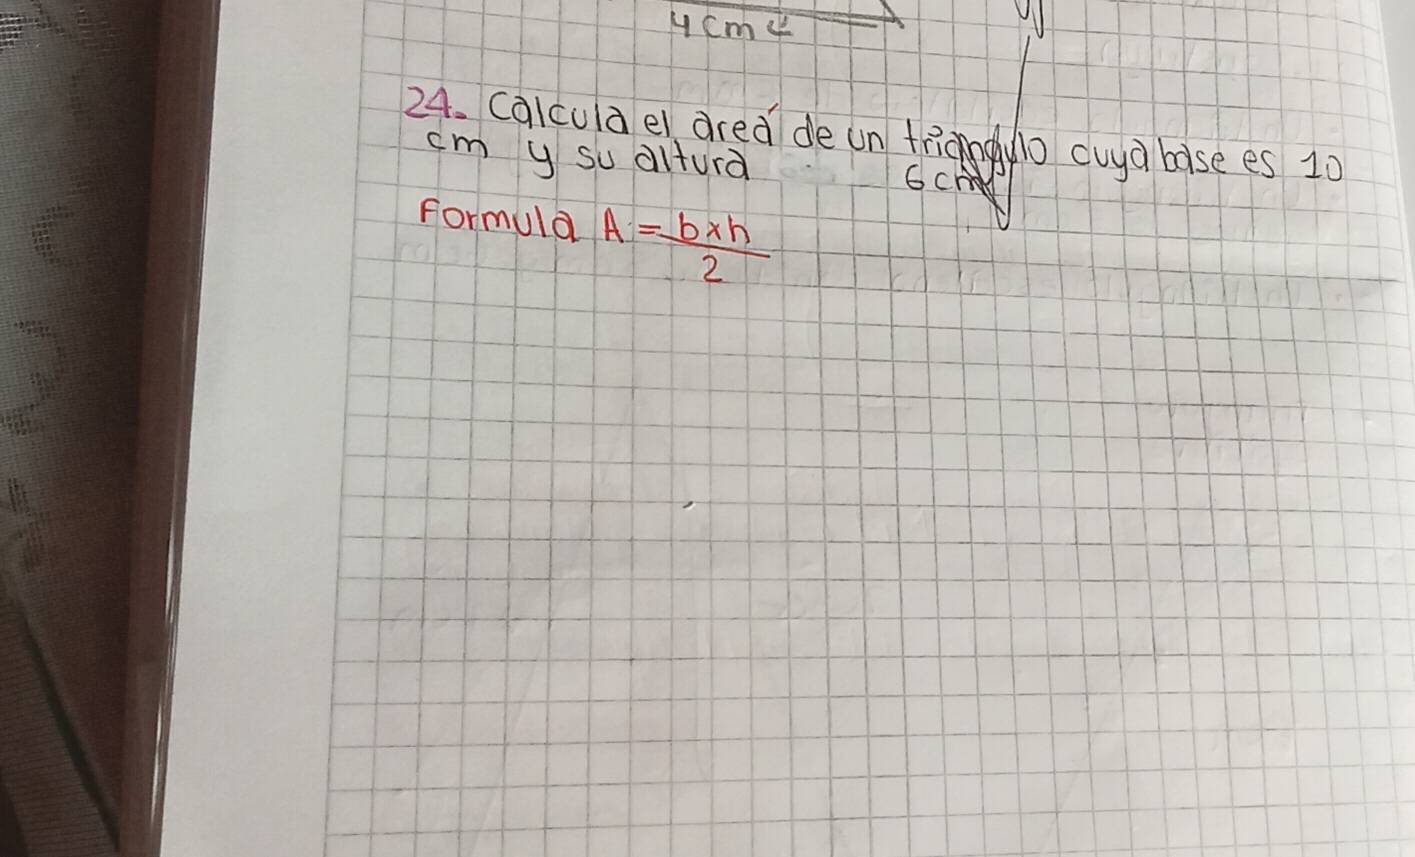 4cm
24. Calcula el areá de un triangulo cuya base es 10
cm y su altura 6cm
Formula A = b x h
2